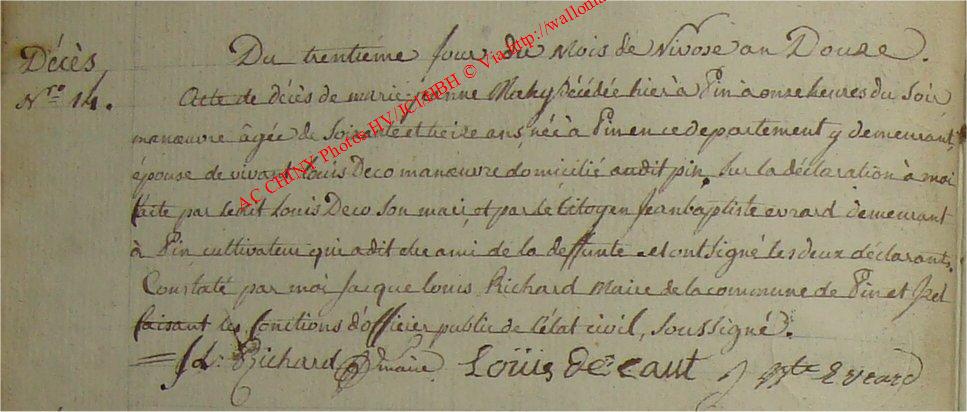 Du trentieme jour du Mois de Nivose an Douze.
Décès
Nro. 14.
Acte de décès de marie jeanne Mahy Décédée hier à Pin à onze heures du Soir
manœuvre âgée de Soixante et treize ans née à Pin en ce departement y demeurant,
épouse de vivant Louis Deco manœuvre domicilié audit pin, sur la déclaration à moi
faite par ledit Louis Deco Son mari, et par le Citoyen jean baptiste evrard demeurant
à Pin cultivateur qui a dit etre ami de la deffunte et ont signé les deux déclarants.
Constaté par moi Jacque louis Richard Maire de la commune de Pin et Izel
faisant les fonctions d'officier public de l'état civil, soussigné.
J L: Richard maire Loüis deecaut J Bte Evrard
AC CHINY Photos HV/JCl/HBH © Via http://wallonia